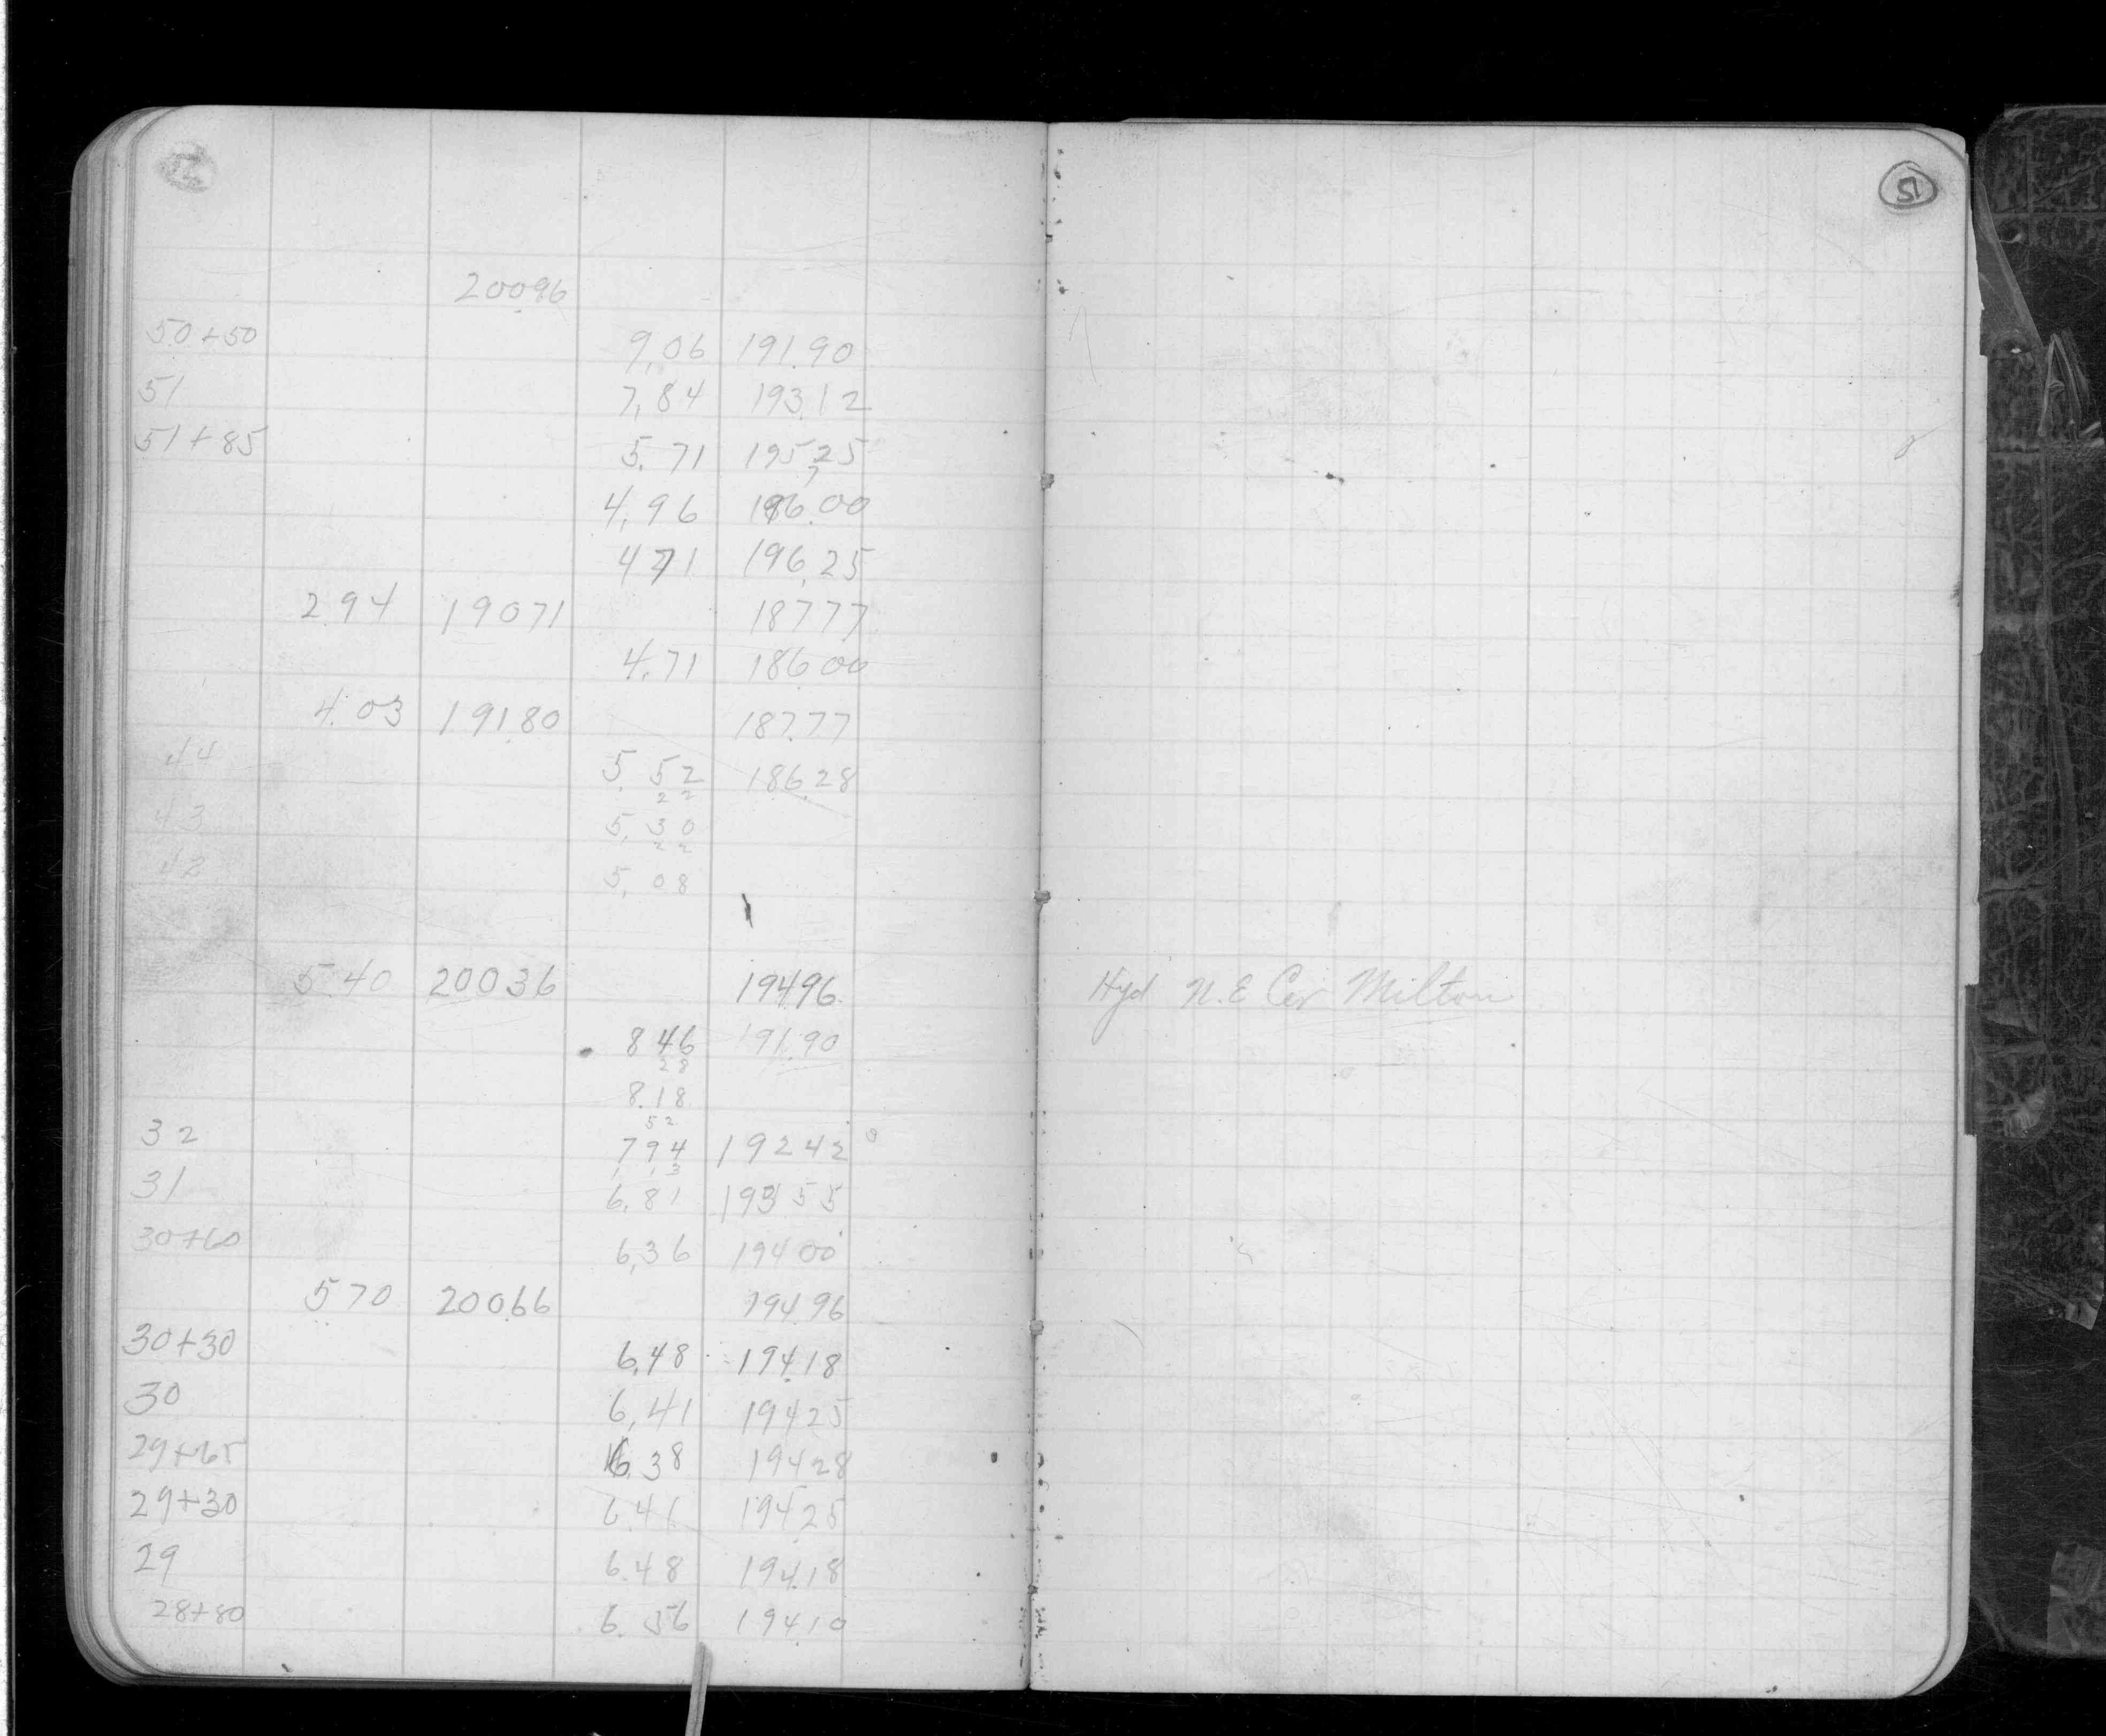 51
20096
50+50 9,06 191.90
51 7,84 193.12
51+85 5.71 195,25
4,96 196.00
471 196,25
294 19071 18777
4.71 186.00
4.03 191.80 187.77
44 5.52 186.28
22
43 5,30
22
42 5,08
5.40 20036 194.96 Hyd N.E Cor Milton
8 46 191.90
28
8.18
52
32 794 19242
1,13
31 6,81 19355
30+60 6,36 194 00
570 200.66 194.96
30+30 6.48 194.18
30 6,41 19425
29+65 6.38 19428
29+30 6.41 194.25
29 6.48 194.18
28+80 6.56 194.10